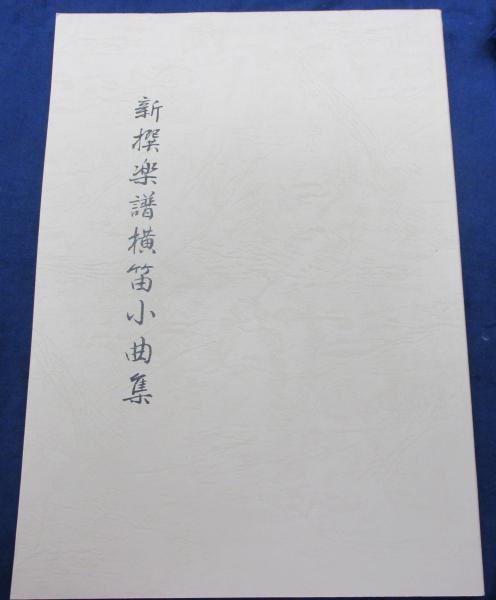 新撰楽譜横笛小曲集